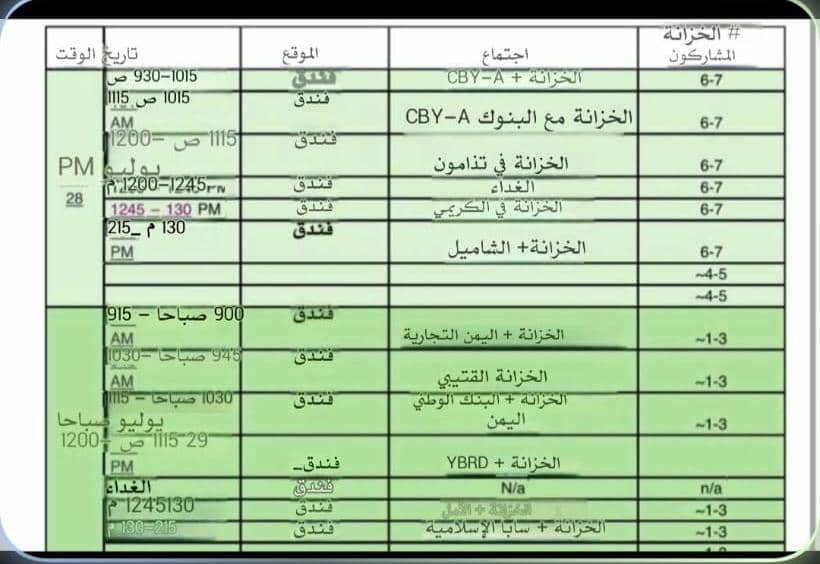 # الخزانة
المشاركون
اجتماع
الموقع
تاريخ الوقت
6-7
الخزانة + CBY-A
فندق
930-1015 ص
6-7
الخزانة مع البنوك CBY-A
فندق
1015 ص 1115
AM
6-7
الخزانة في تذامون
فندق
1115 ص -1200
PM يوليو
28
6-7
الغداء
فندق
1200-1245 م
6-7
الخزانة في الكريمي
فندق
1245 - 130 PM
6-7
الخزانة+ الشاميل
فندق
130 م _215
PM
~4-5
~4-5
~1-3
الخزانة + اليمن التجارية
فندق
900 صباحا - 915
AM
~1-3
الخزانة القتيبي
فندق
945 صباحا -1030
AM
~1-3
الخزانة + البنك الوطني
اليمن
فندق
1030 صباحا - 1115
يوليو صباحا
29 1115 ص -1200
PM
الخزانة + YBRD
فندق_
n/a
N/a
فندق
الغداء
~1-3
الخزانة + الأمل
فندق
1245130 م
~1-3
الخزانة + سابا الإسلامية
فندق
130-215 م